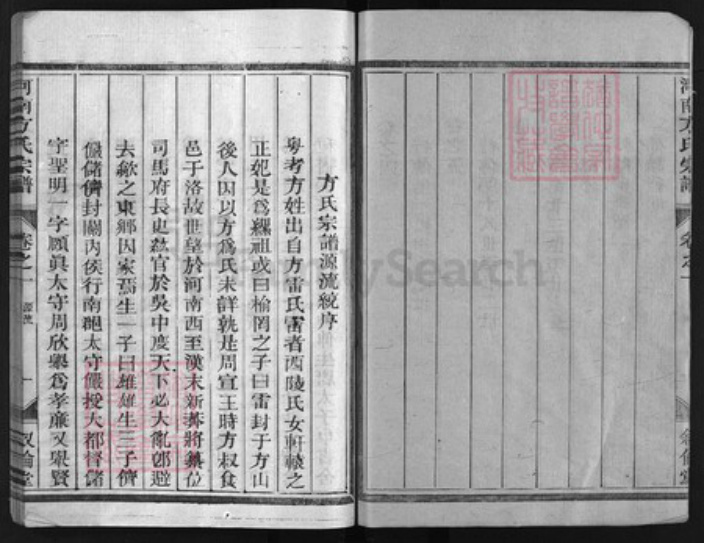 河南方氏宗譜
卷之一
敘倫堂
方氏宗譜源流統序
粵考方姓出自方雷氏雷者西陵氏女軒轅之
正妃是為纙祖或曰榆罔之子曰雷封于方山
後人因以方為氏未詳孰是周宣王時方叔食
邑于洛故世望於河南西至漢末新莽將篡位
司馬府長史紘官於吳中度天下必大亂避
去歙之東鄉因家焉生一子曰雄雄生三子儕
儼儲儕封關內侯行南郡太守儼授大都督儲
字聖明一字頤真太守周歆舉為孝廉又舉賢
河南方氏宗譜
卷之一
源流
一
敘倫堂
FamilySearch